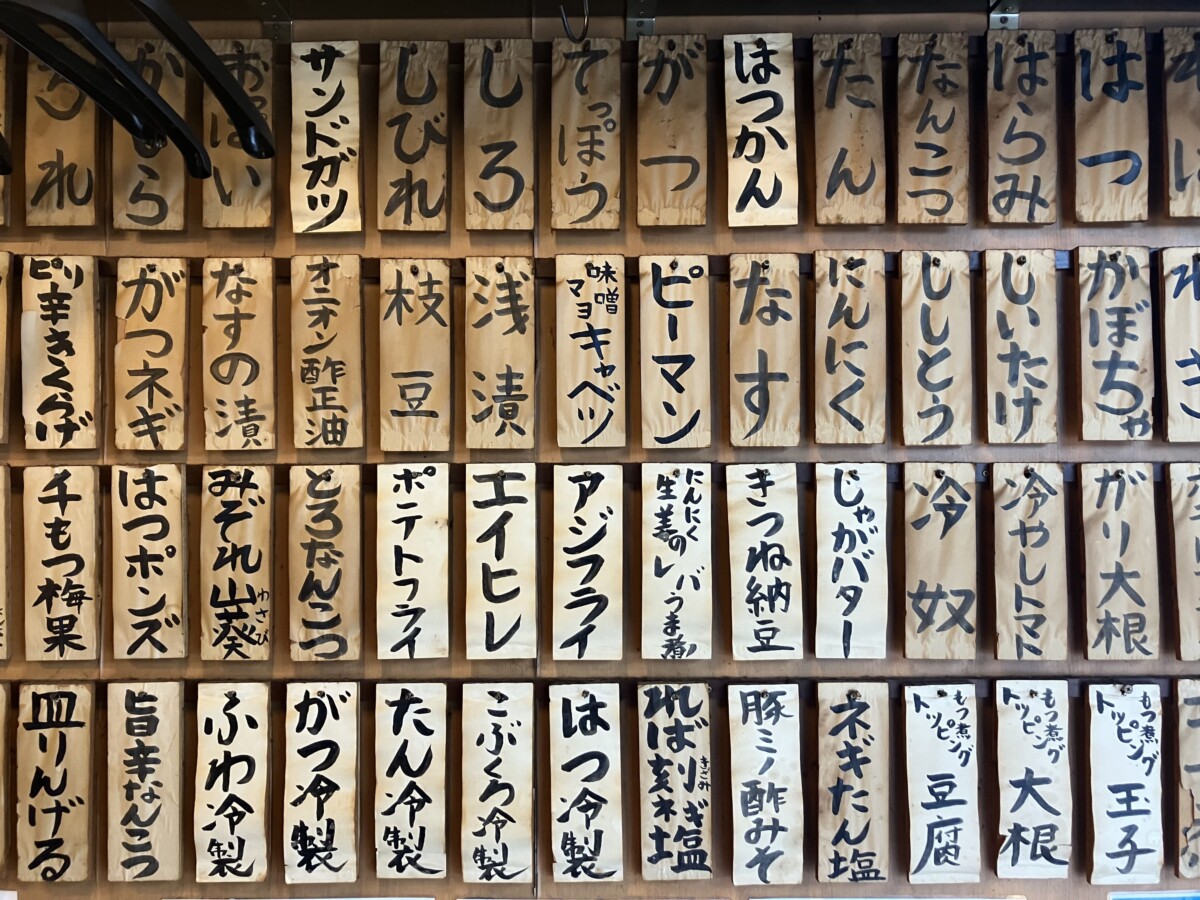 はつ
はらみ
なんこつ
たん
はつかん
がつ
てっぽう
しろ
しびれ
サンドガツ
おっぱい
かしら
かぼちゃ
しいたけ
ししとう
にんにく
なす
ピーマン
味噌
マヨキャベツ
浅漬
枝豆
オニオン酢正油
なすの漬
がつネギ
ピリ辛きくらげ
ガリ大根
冷やしトマト
冷奴
じゃがバター
きつね納豆
にんにく
生姜のレバうま煮
アジフライ
エイヒレ
ポテトフライ
とろなんこつ
みぞれ山葵
わさび
はつポンズ
チもつ梅果
もつ煮
トッピング
玉子
もつ煮
トッピング
大根
もつ煮
トッピング
豆腐
ネギたん塩
豚ミノ酢みそ
れば刻ネぎ塩
きざみ
はつ冷製
こぶくろ冷製
たん冷製
がつ冷製
ふわ冷製
旨辛なんこつ
皿りんげる